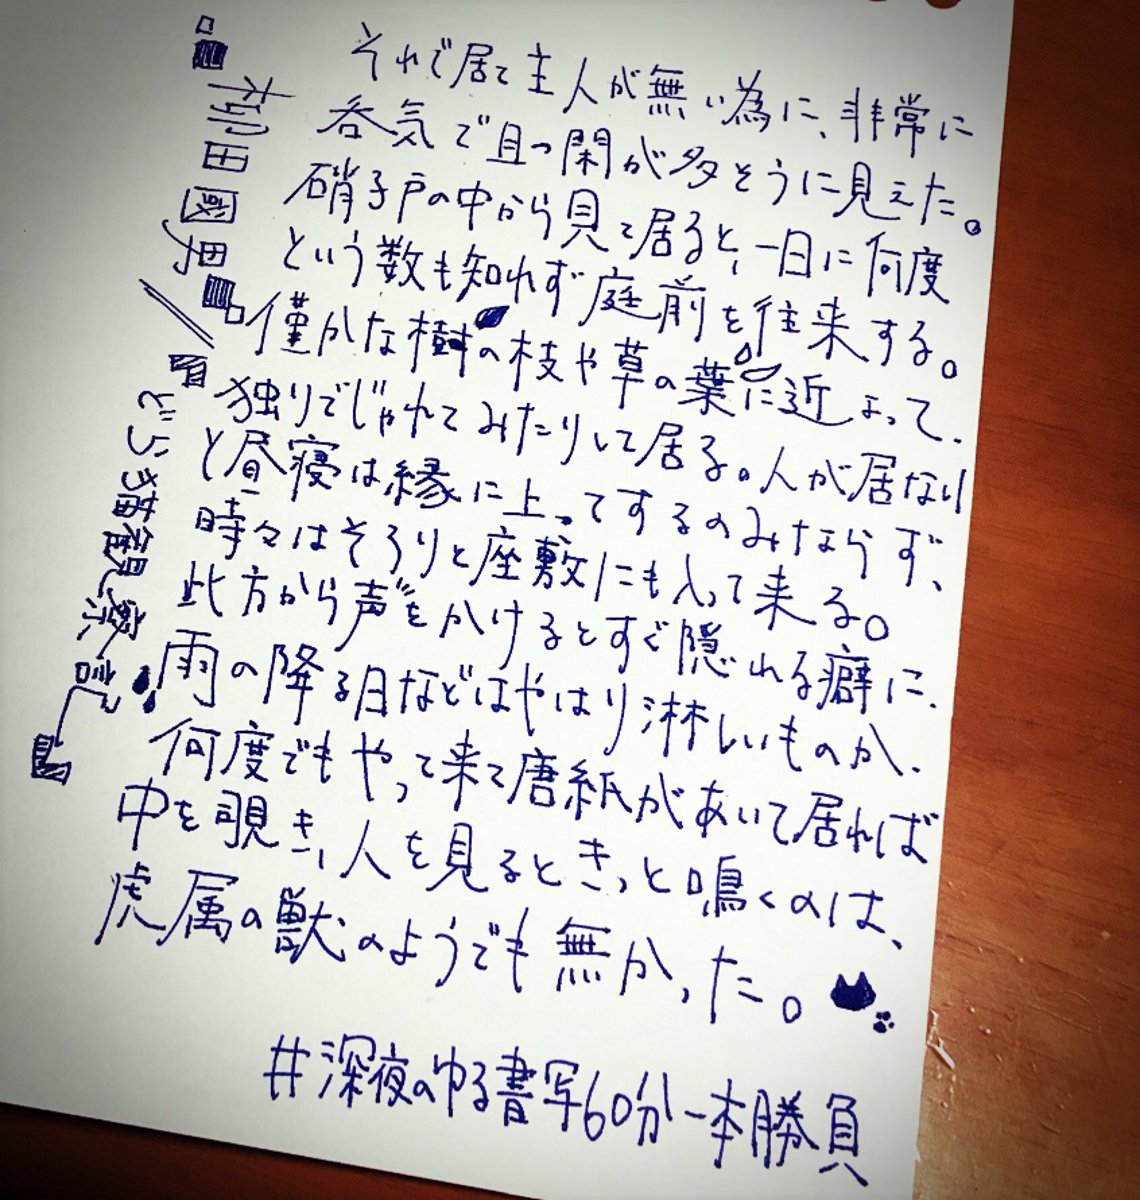 それで居て主人が無い為に、非常に
呑気で且つ閑が多そうに見えた。
硝子戸の中から見て居ると、一日に何度
という数も知れず庭前を往来する。
僅かな樹の枝や草の葉に近よって、
独りでじゃれてみたりして居る。人が居ない
と昼寝は縁に上ってするのみならず、
時々はそろりと座敷にも入って来る。
此方から声をかけるとすぐ隠れる癖に、
雨の降る日などはやはり淋しいものか、
何度でもやって来て唐紙があいて居れば
中を覗き、人を見るときっと鳴くのは、
虎属の獣のようでも無かった。
柳田國男
どら猫観察記
#深夜のゆる書写60分一本勝負